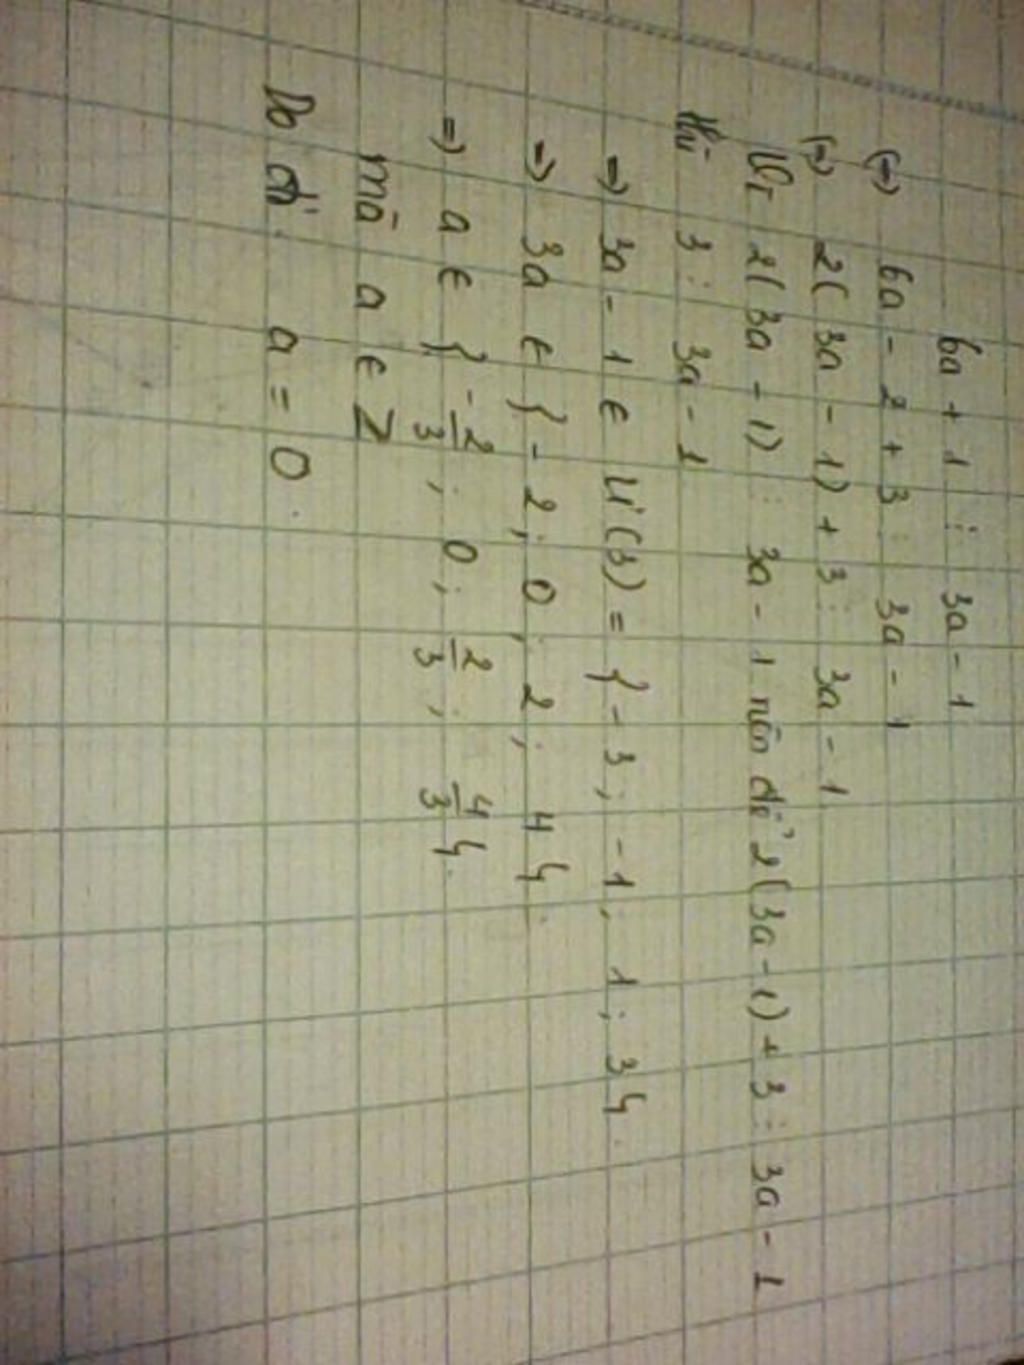 6a + 1 ⋮ 3a - 1
(=) 6a - 2 + 3 ⋮ 3a - 1
(=) 2(3a - 1) + 3 ⋮ 3a - 1
Vì 2(3a - 1) ⋮ 3a - 1 nên để 2(3a - 1) + 3 ⋮ 3a - 1
thì 3 ⋮ 3a - 1
=) 3a - 1 ∈ Ư(3) = { - 3; - 1; 1; 3 }.
=) 3a ∈ { - 2; 0; 2; 4 }.
=) a ∈ { -2/3; 0; 2/3; 4/3 }.
mà a ∈ Z
Do đó. a = 0.